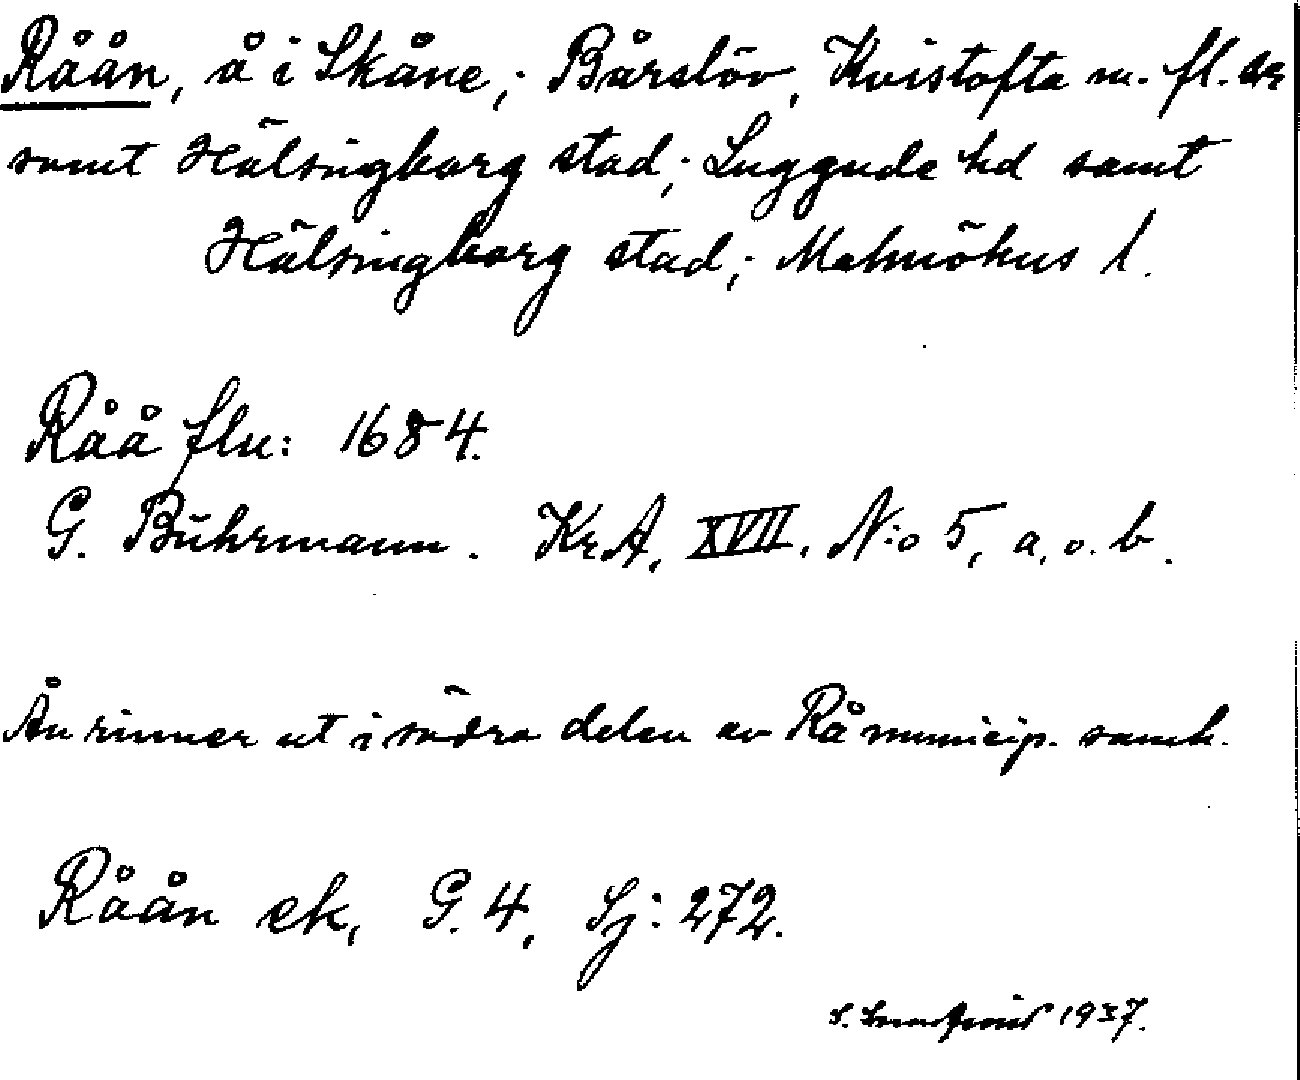 Råån, å i Skåne; Bårslöv, Kvistofta m. fl. snr
samt Hälsingborg stad; Luggude hd samt
Hälsingborg stad; Malmöhus l.
Råå flu: 1684.
G. Buhrmann. KrA, XVII, N:o 5, a. o. b.
Ån rinner ut i södra delen av Rå municip. samh.
Råån ek, G. 4, Sj: 272.
S. 1937.